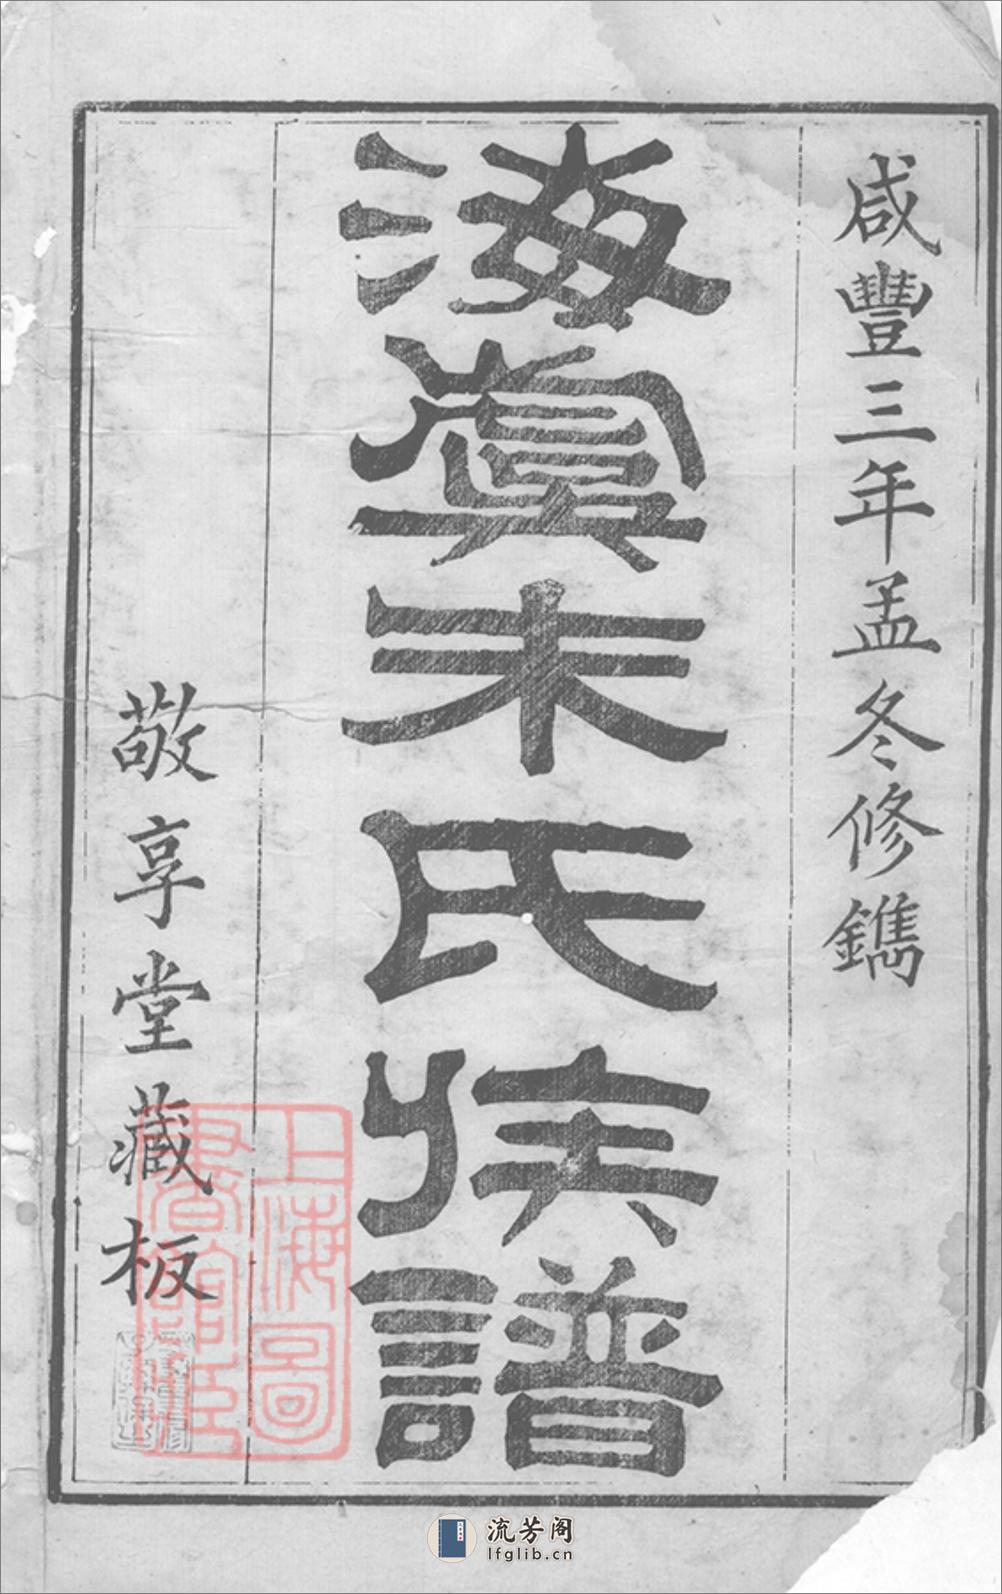 咸豐三年孟冬修鐫
海虞朱氏族譜
敬享堂藏板
上海圖書館藏
流芳阁
lfglib.cn